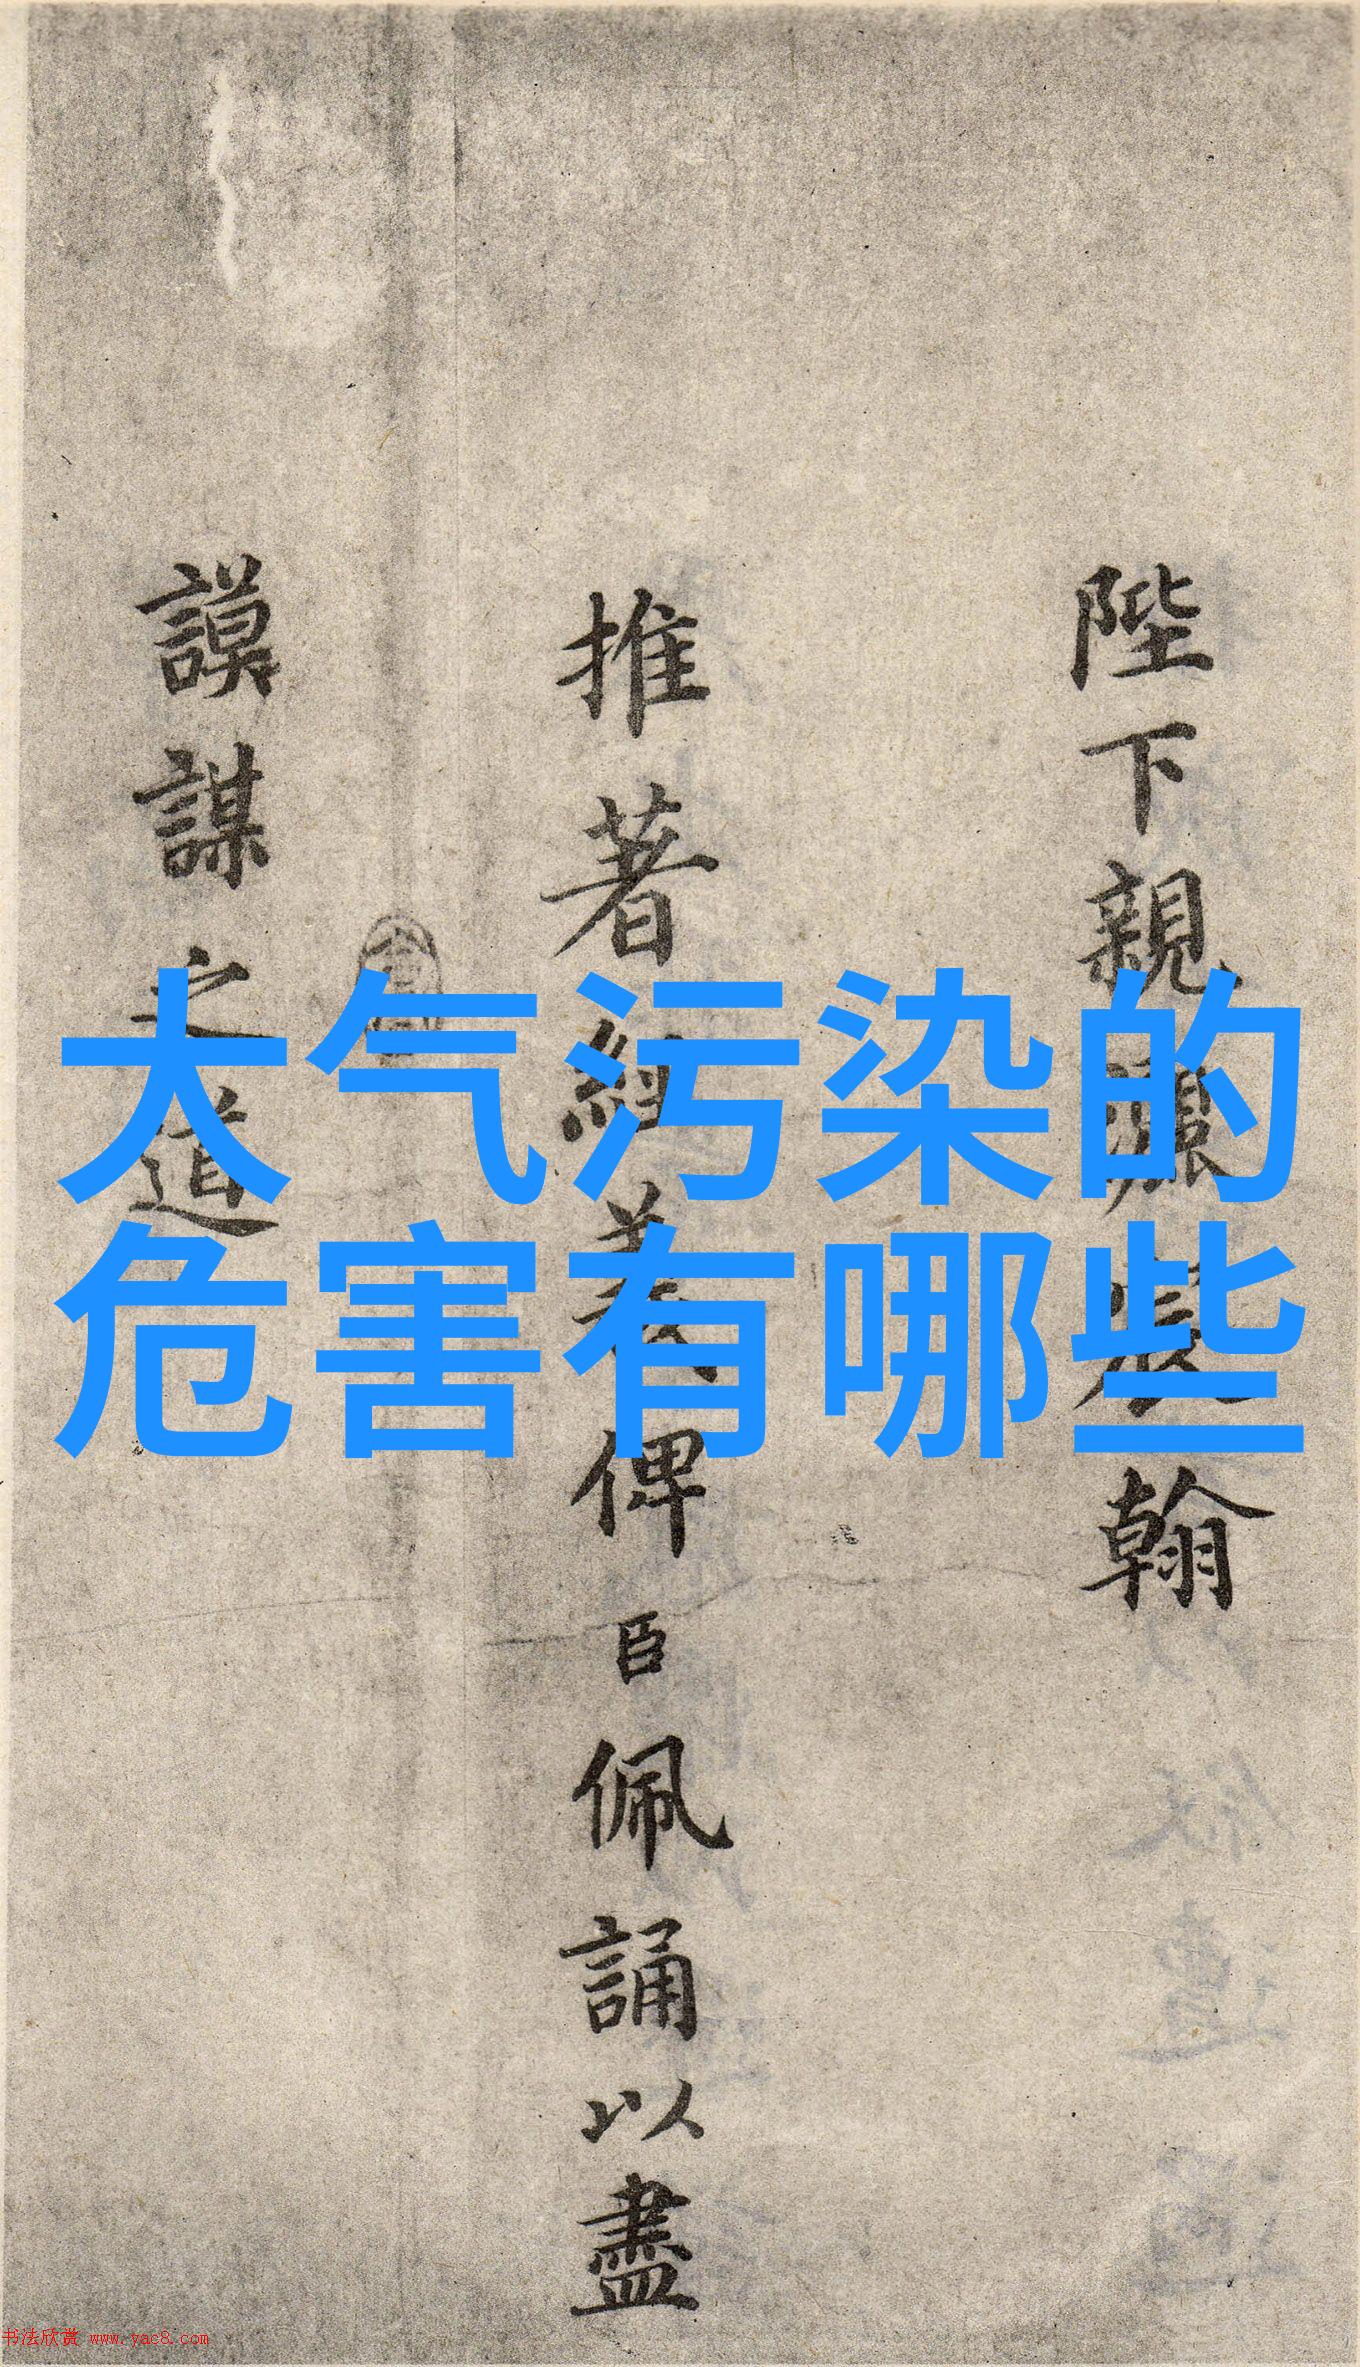 陛下親灑宸翰
推著經義俾臣佩誦以盡
謨謀之道
大气污染的
危害有哪些
书法欣赏 www.yac8.com